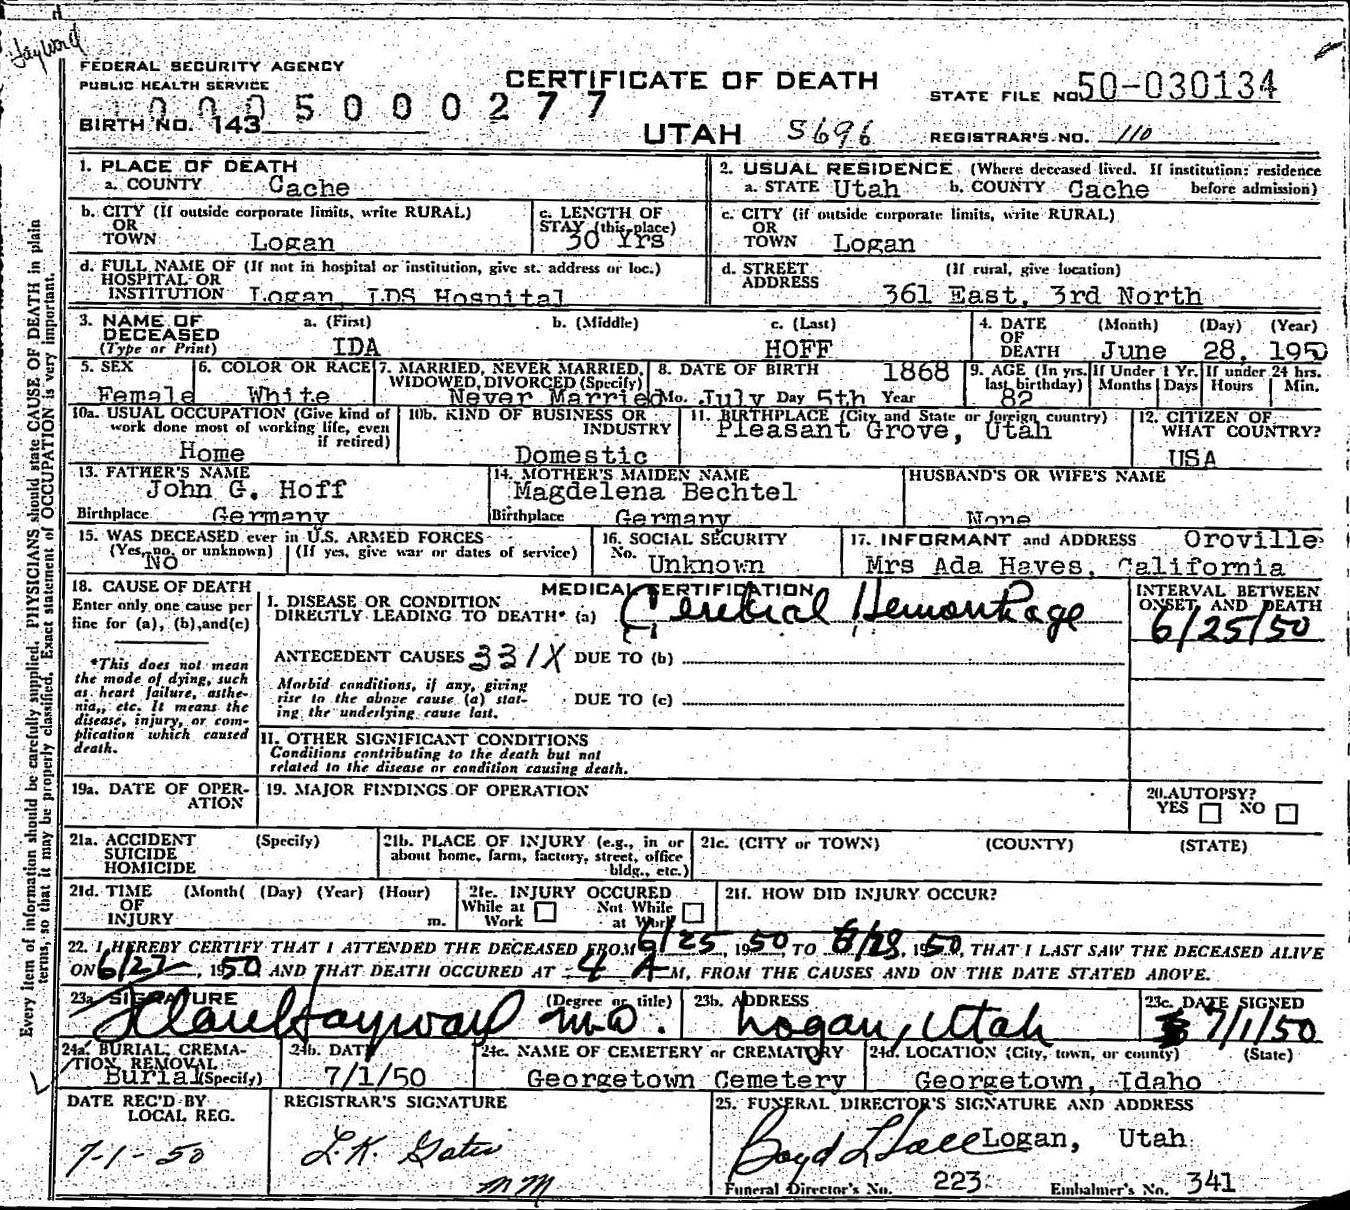 Hayward
FEDERAL SECURITY AGENCY
PUBLIC HEALTH SERVICE
CERTIFICATE OF DEATH
STATE FILE NO. 50-030134
0005000277
BIRTH NO. 143
UTAH 5696
REGISTRAR'S NO. 110
1. PLACE OF DEATH
a. COUNTY Cache
2. USUAL RESIDENCE (Where deceased lived. If institution: residence before admission)
a. STATE Utah b. COUNTY Cache
b. CITY (If outside corporate limits, write RURAL)
OR
TOWN Logan
c. LENGTH OF
STAY (this place)
30 Yrs
c. CITY (if outside corporate limits, write RURAL)
OR
TOWN Logan
d. FULL NAME OF (If not in hospital or institution, give st. address or loc.)
HOSPITAL OR
INSTITUTION Logan LDS Hospital
d. STREET (If rural, give location)
ADDRESS
361 East, 3rd North
3. NAME OF
DECEASED
(Type or Print)
a. (First) b. (Middle) c. (Last)
IDA HOFF
4. DATE (Month) (Day) (Year)
OF
DEATH June 28, 1950
5. SEX
Female
6. COLOR OR RACE
White
7. MARRIED, NEVER MARRIED,
WIDOWED, DIVORCED (Specify)
Never Married
8. DATE OF BIRTH 1868
Mo. July Day 5th Year
9. AGE (In yrs. last birthday)
82
If Under 1 Yr.
Months Days
If under 24 hrs.
Hours Min.
10a. USUAL OCCUPATION (Give kind of
work done most of working life, even
if retired)
Home
10b. KIND OF BUSINESS OR
INDUSTRY
Domestic
11. BIRTHPLACE (City and State or foreign country)
Pleasant Grove, Utah
12. CITIZEN OF
WHAT COUNTRY?
USA
13. FATHER'S NAME
John G. Hoff
Birthplace Germany
14. MOTHER'S MAIDEN NAME
Magdelena Bechtel
Birthplace Germany
HUSBAND'S OR WIFE'S NAME
None
15. WAS DECEASED ever in U.S. ARMED FORCES
(Yes, no, or unknown) (If yes, give war or dates of service)
No
16. SOCIAL SECURITY
No.
Unknown
17. INFORMANT and ADDRESS Oroville
Mrs Ada Hayes, California
18. CAUSE OF DEATH
Enter only one cause per
line for (a), (b), and (c)
*This does not mean
the mode of dying, such
as heart failure, asthe-
nia, etc. It means the
disease, injury, or com-
plication which caused
death.
MEDICAL CERTIFICATION
I. DISEASE OR CONDITION
DIRECTLY LEADING TO DEATH* (a) Cerebral Hemorrhage
INTERVAL BETWEEN
ONSET AND DEATH
6/25/50
ANTECEDENT CAUSES 331X DUE TO (b)
Morbid conditions, if any, giving
rise to the above cause (a) stat-
ing the underlying cause last.
DUE TO (c)
II. OTHER SIGNIFICANT CONDITIONS
Conditions contributing to the death but not
related to the disease or condition causing death.
19a. DATE OF OPER-
ATION
19. MAJOR FINDINGS OF OPERATION
20. AUTOPSY?
YES NO
21a. ACCIDENT (Specify)
SUICIDE
HOMICIDE
21b. PLACE OF INJURY (e.g., in or
about home, farm, factory, street, office
bldg., etc.)
21c. (CITY or TOWN) (COUNTY) (STATE)
21d. TIME (Month( (Day) (Year) (Hour)
OF
INJURY m.
21e. INJURY OCCURED
While at Work Not While at Work
21f. HOW DID INJURY OCCUR?
22. I HEREBY CERTIFY THAT I ATTENDED THE DECEASED FROM 6/25, 1950 TO 6/28, 1950, THAT I LAST SAW THE DECEASED ALIVE
ON 6/27, 1950 AND THAT DEATH OCCURED AT 4 A M., FROM THE CAUSES AND ON THE DATE STATED ABOVE.
23a. SIGNATURE (Degree or title)
Hayward M.D.
23b. ADDRESS
Logan, Utah
23c. DATE SIGNED
7/1/50
24a. BURIAL, CREMA-
TION REMOVAL
Burial (Specify)
24b. DATE
7/1/50
24c. NAME OF CEMETERY or CREMATORY
Georgetown Cemetery
24d. LOCATION (City, town, or county) (State)
Georgetown, Idaho
DATE REC'D BY
LOCAL REG.
7-1-50
REGISTRAR'S SIGNATURE
L.K. Gates
mm
25. FUNERAL DIRECTOR'S SIGNATURE AND ADDRESS
Boyd L Hall Logan, Utah
Funeral Director's No. 223 Embalmer's No. 341
Every item of information should be carefully supplied. PHYSICIANS should state CAUSE OF DEATH in plain
terms, so that it may be properly classified. Exact statement of OCCUPATION is very important.